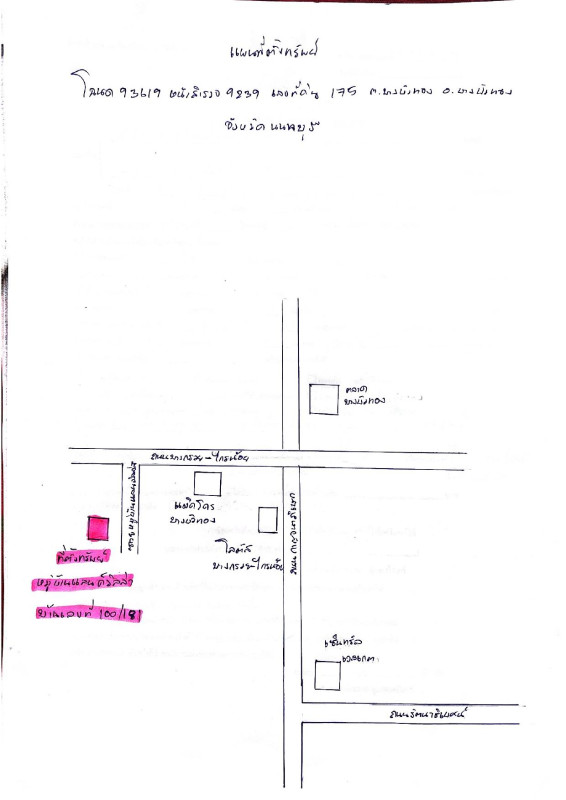 แผนที่ตั้งทรัพย์
โฉนด 93619 หน้าสำรวจ 9239 เลขที่ดิน 175 ต.บางบัวทอง อ.บางบัวทอง
จังหวัด นนทบุรี
ตลาด
บางบัวทอง
ถนนบางกรวย-ไทรน้อย
แม็คโคร
บางบัวทอง
โลตัส
บางกรวย-ไทรน้อย
ถนนกาญจนาภิเษก
ที่ตั้งทรัพย์
หมู่บ้านแลนด์วิลล่า
บ้านเลขที่ 100/181
เซ็นทรัล
เวสเกต
ถนนรัตนาธิเบศน์